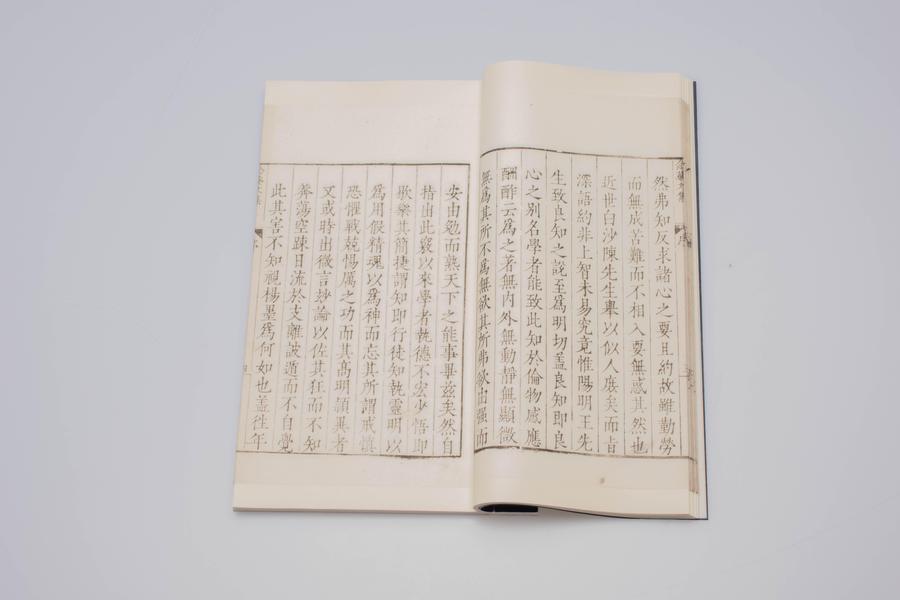 然弗知反求諸心之要且約故雖勤勞
而無成苦難而不相入要無惑其然也
近世白沙陳先生舉以似人庶矣而旨
深語約非上智未易究竟惟陽明王先
生致良知之說至為明切盖良知即良
心之别名學者能致此知於倫物感應
酬酢云為之著無內外無動靜無顯微
無為其所不為無欲其所弗欲由强而
安由勉而熟天下之能事畢兹矣然自
指出此竅以來學者執德不宏少悟即
歇樂其簡捷謂知即行徒知執靈明以
為用假精魂以為神而忘其所謂戒慎
恐懼戰兢惕厲之功而其高明頴異者
又或時出微言玅論以佐其狂而不知
莾蕩空踈日流於支離詖遁而不自覺
此其害不知視楊墨為何如也盖徃年